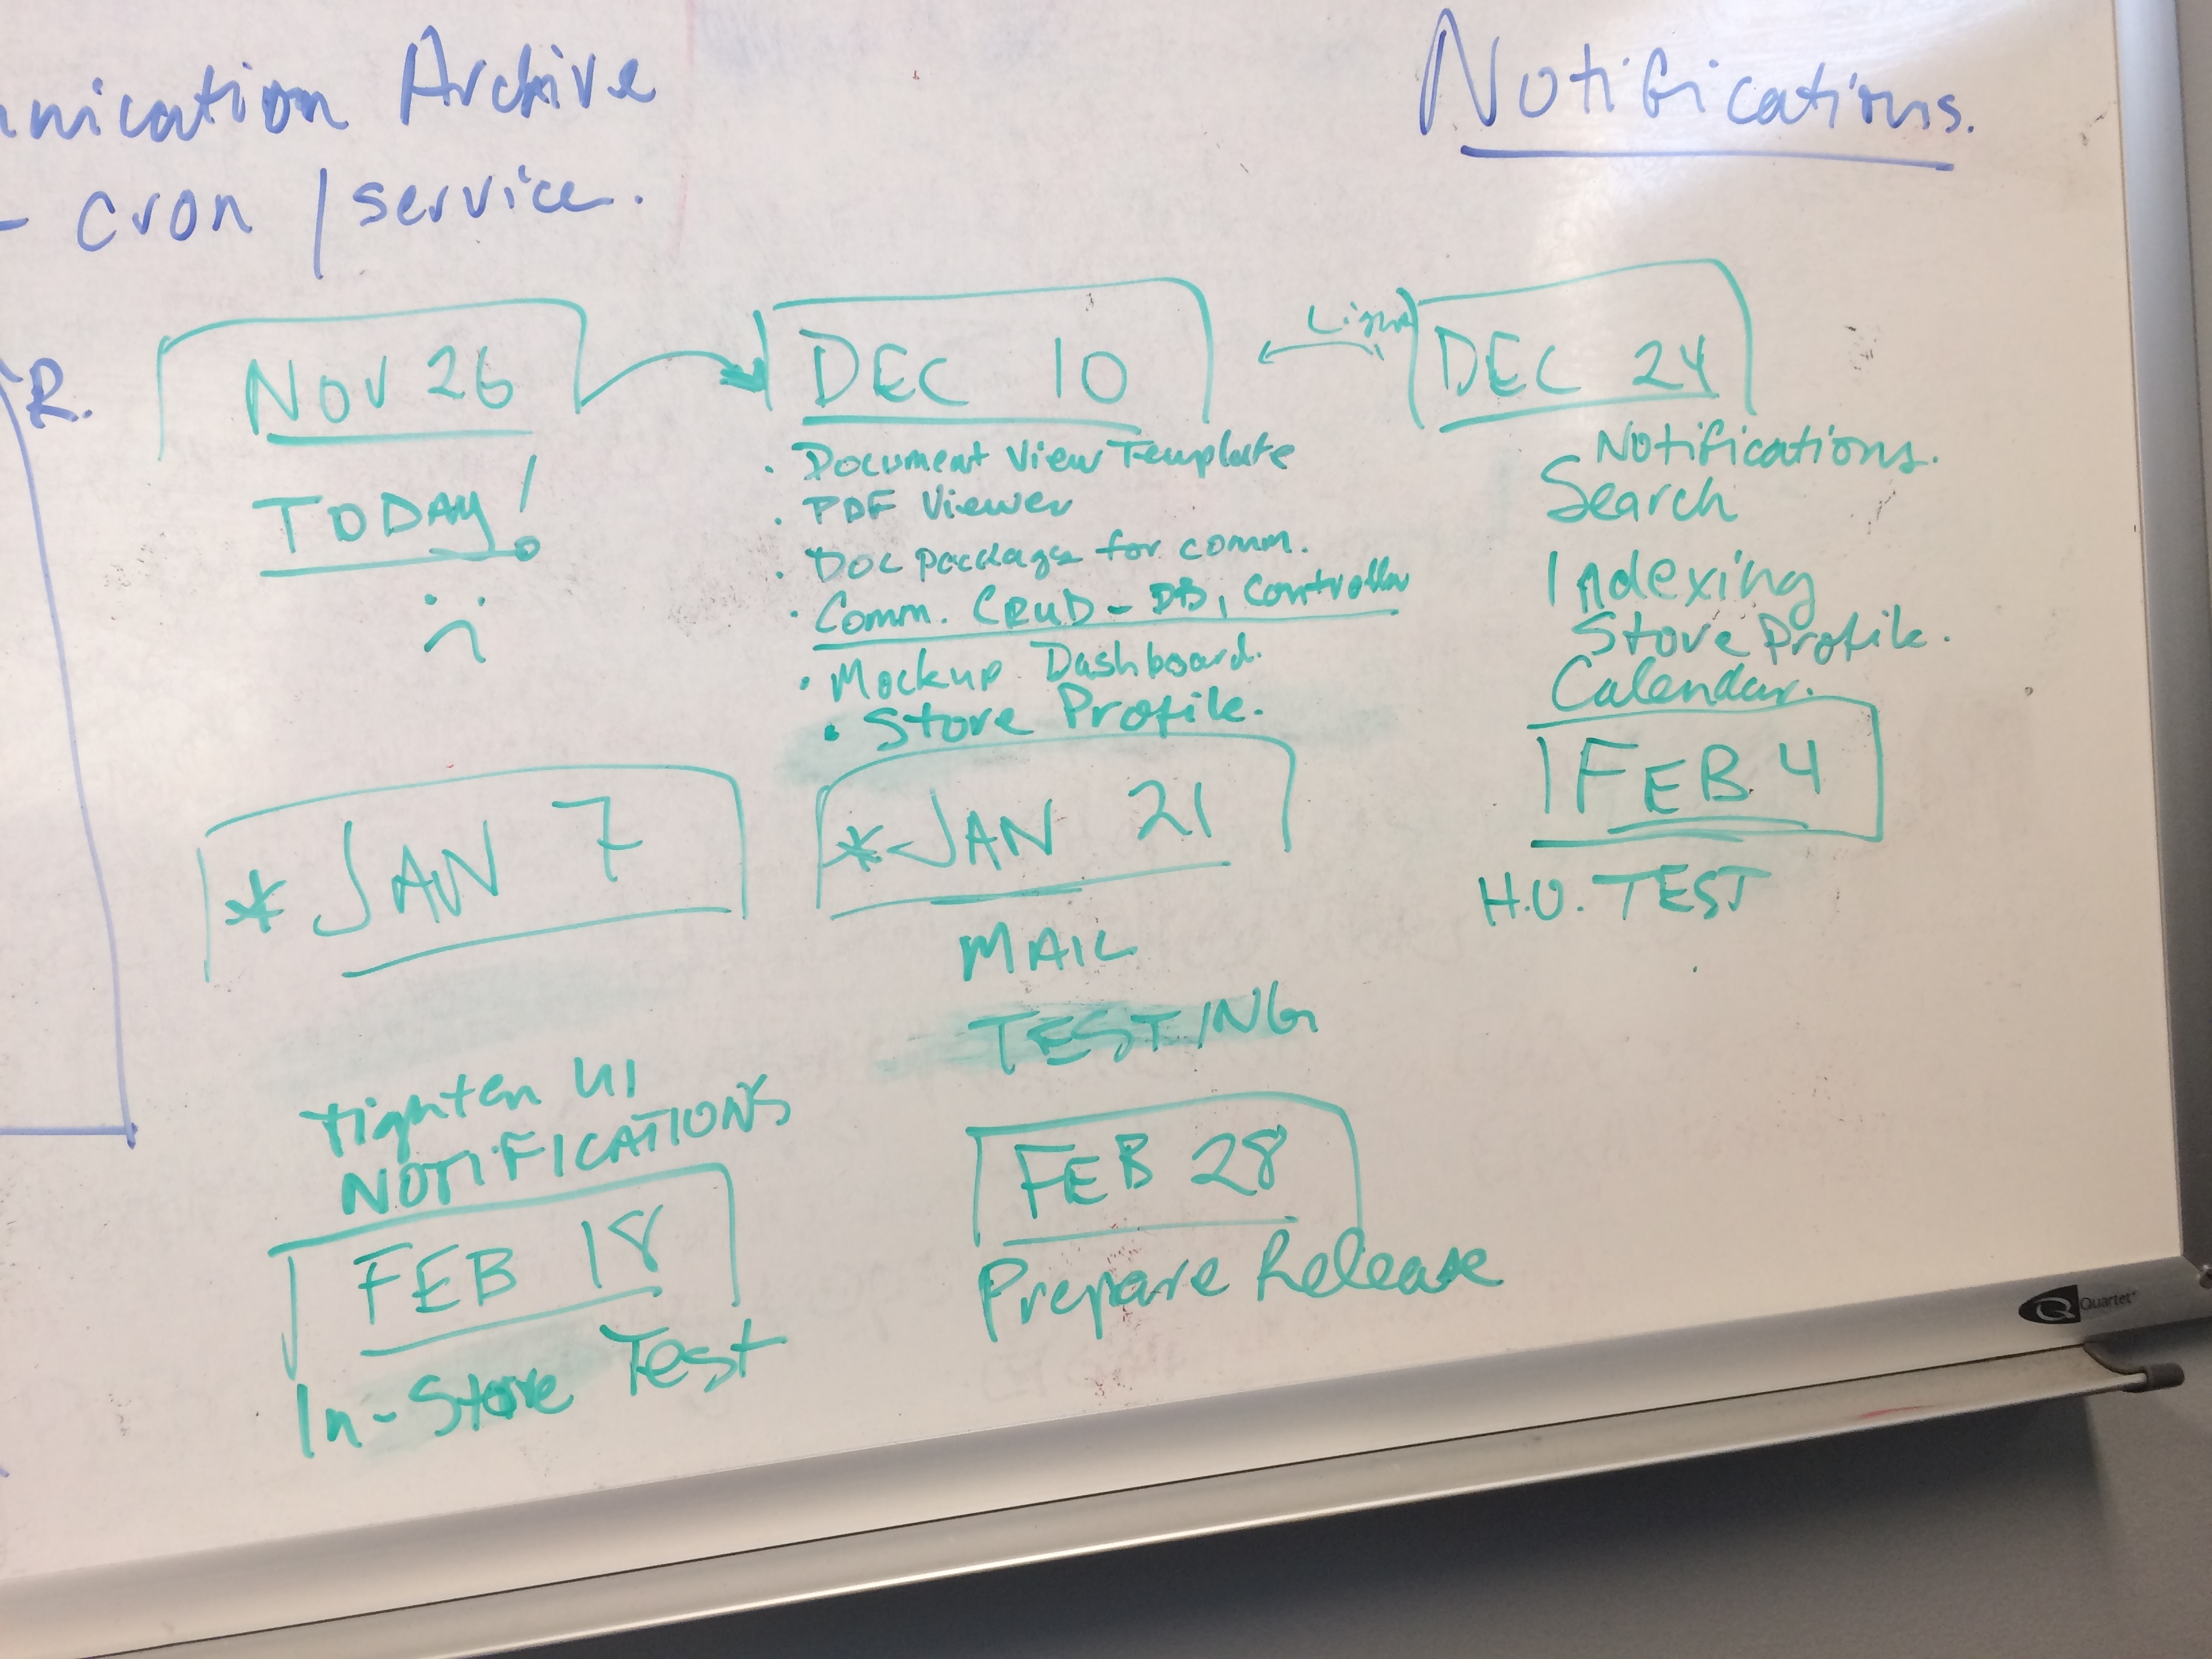 nication Archive
- cron / service.
Notifications.
R.
NOV 26
TODAY!
DEC 10
• Document View Template
• PDF Viewer
• Doc package for comm.
• Comm. CRUD - DB, Controller
• Mockup Dashboard.
• Store Profile.
DEC 24
Notifications.
Search
Indexing
Store Profile.
Calendar.
* JAN 7
Tighten UI
NOTIFICATIONS
* JAN 21
MAIL
TESTING
FEB 4
H.O. TEST
FEB 18
In-Store Test
FEB 28
Prepare Release
Quartet